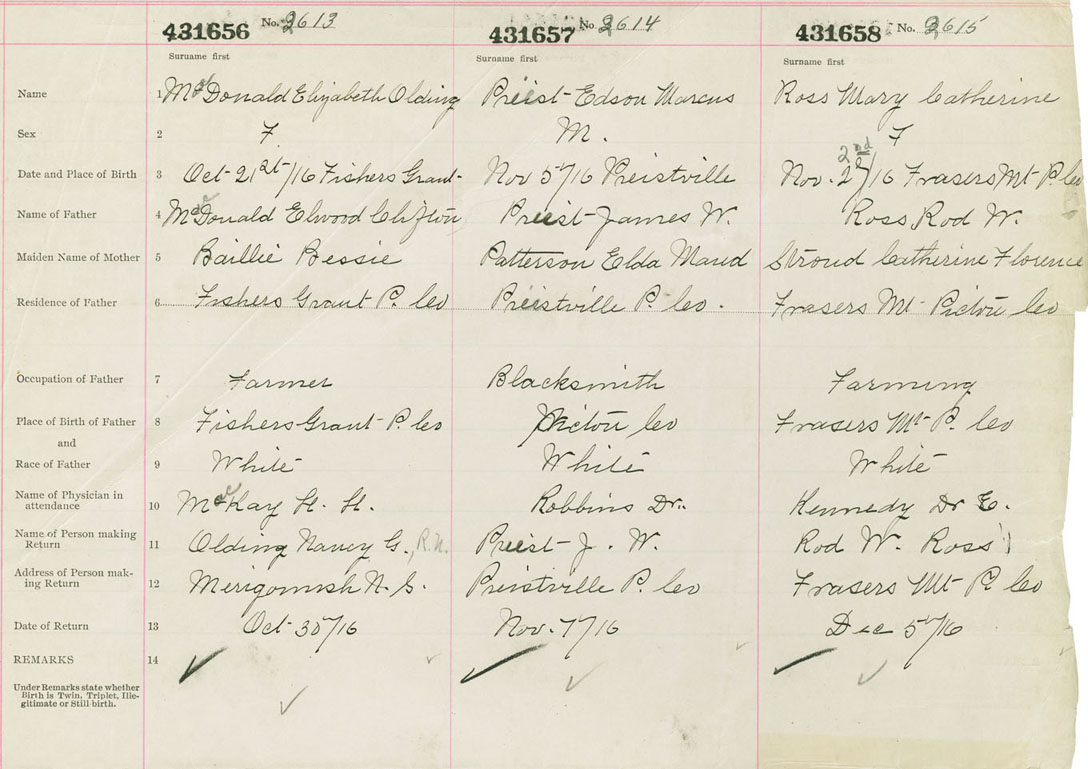 431656 No. 2613 431657 No. 2614 431658 No. 2615
Surname first Surname first Surname first
Name 1 MacDonald Elizabeth Olding Preist Edson Marcus Ross Mary Catherine
Sex 2 F M. F
2nd
Date and Place of Birth 3 Oct 21st/16 Fishers Grant Nov 5th/16 Preistville Nov. 2/16 Frasers Mt P. Co
Name of Father 4 MacDonald Elwood Clifton Preist James W. Ross Rod W.
Maiden Name of Mother 5 Baillie Bessie Patterson Elda Maud Stroud Catherine Florence
Residence of Father 6 Fishers Grant P. Co Preistville P. Co. Frasers Mt Pictou Co
Occupation of Father 7 Farmer Blacksmith Farming
Place of Birth of Father 8 Fishers Grant P. Co Pictou Co Frasers Mt P. Co
and
Race of Father 9 White White White
Name of Physician in
attendance 10 MacKay H. H. Robbins Dr. Kennedy Dr E.
Name of Person making
Return 11 Olding Nancy G., R.N. Preist J. W. Rod W. Ross
Address of Person mak-
ing Return 12 Merigomish N. S. Preistville P. Co Frasers Mt P. Co
Date of Return 13 Oct 30/16 Nov. 7/16 Dec 5th/16
REMARKS 14
Under Remarks state whether
Birth is Twin, Triplet, Ille-
gitimate or Still-birth.